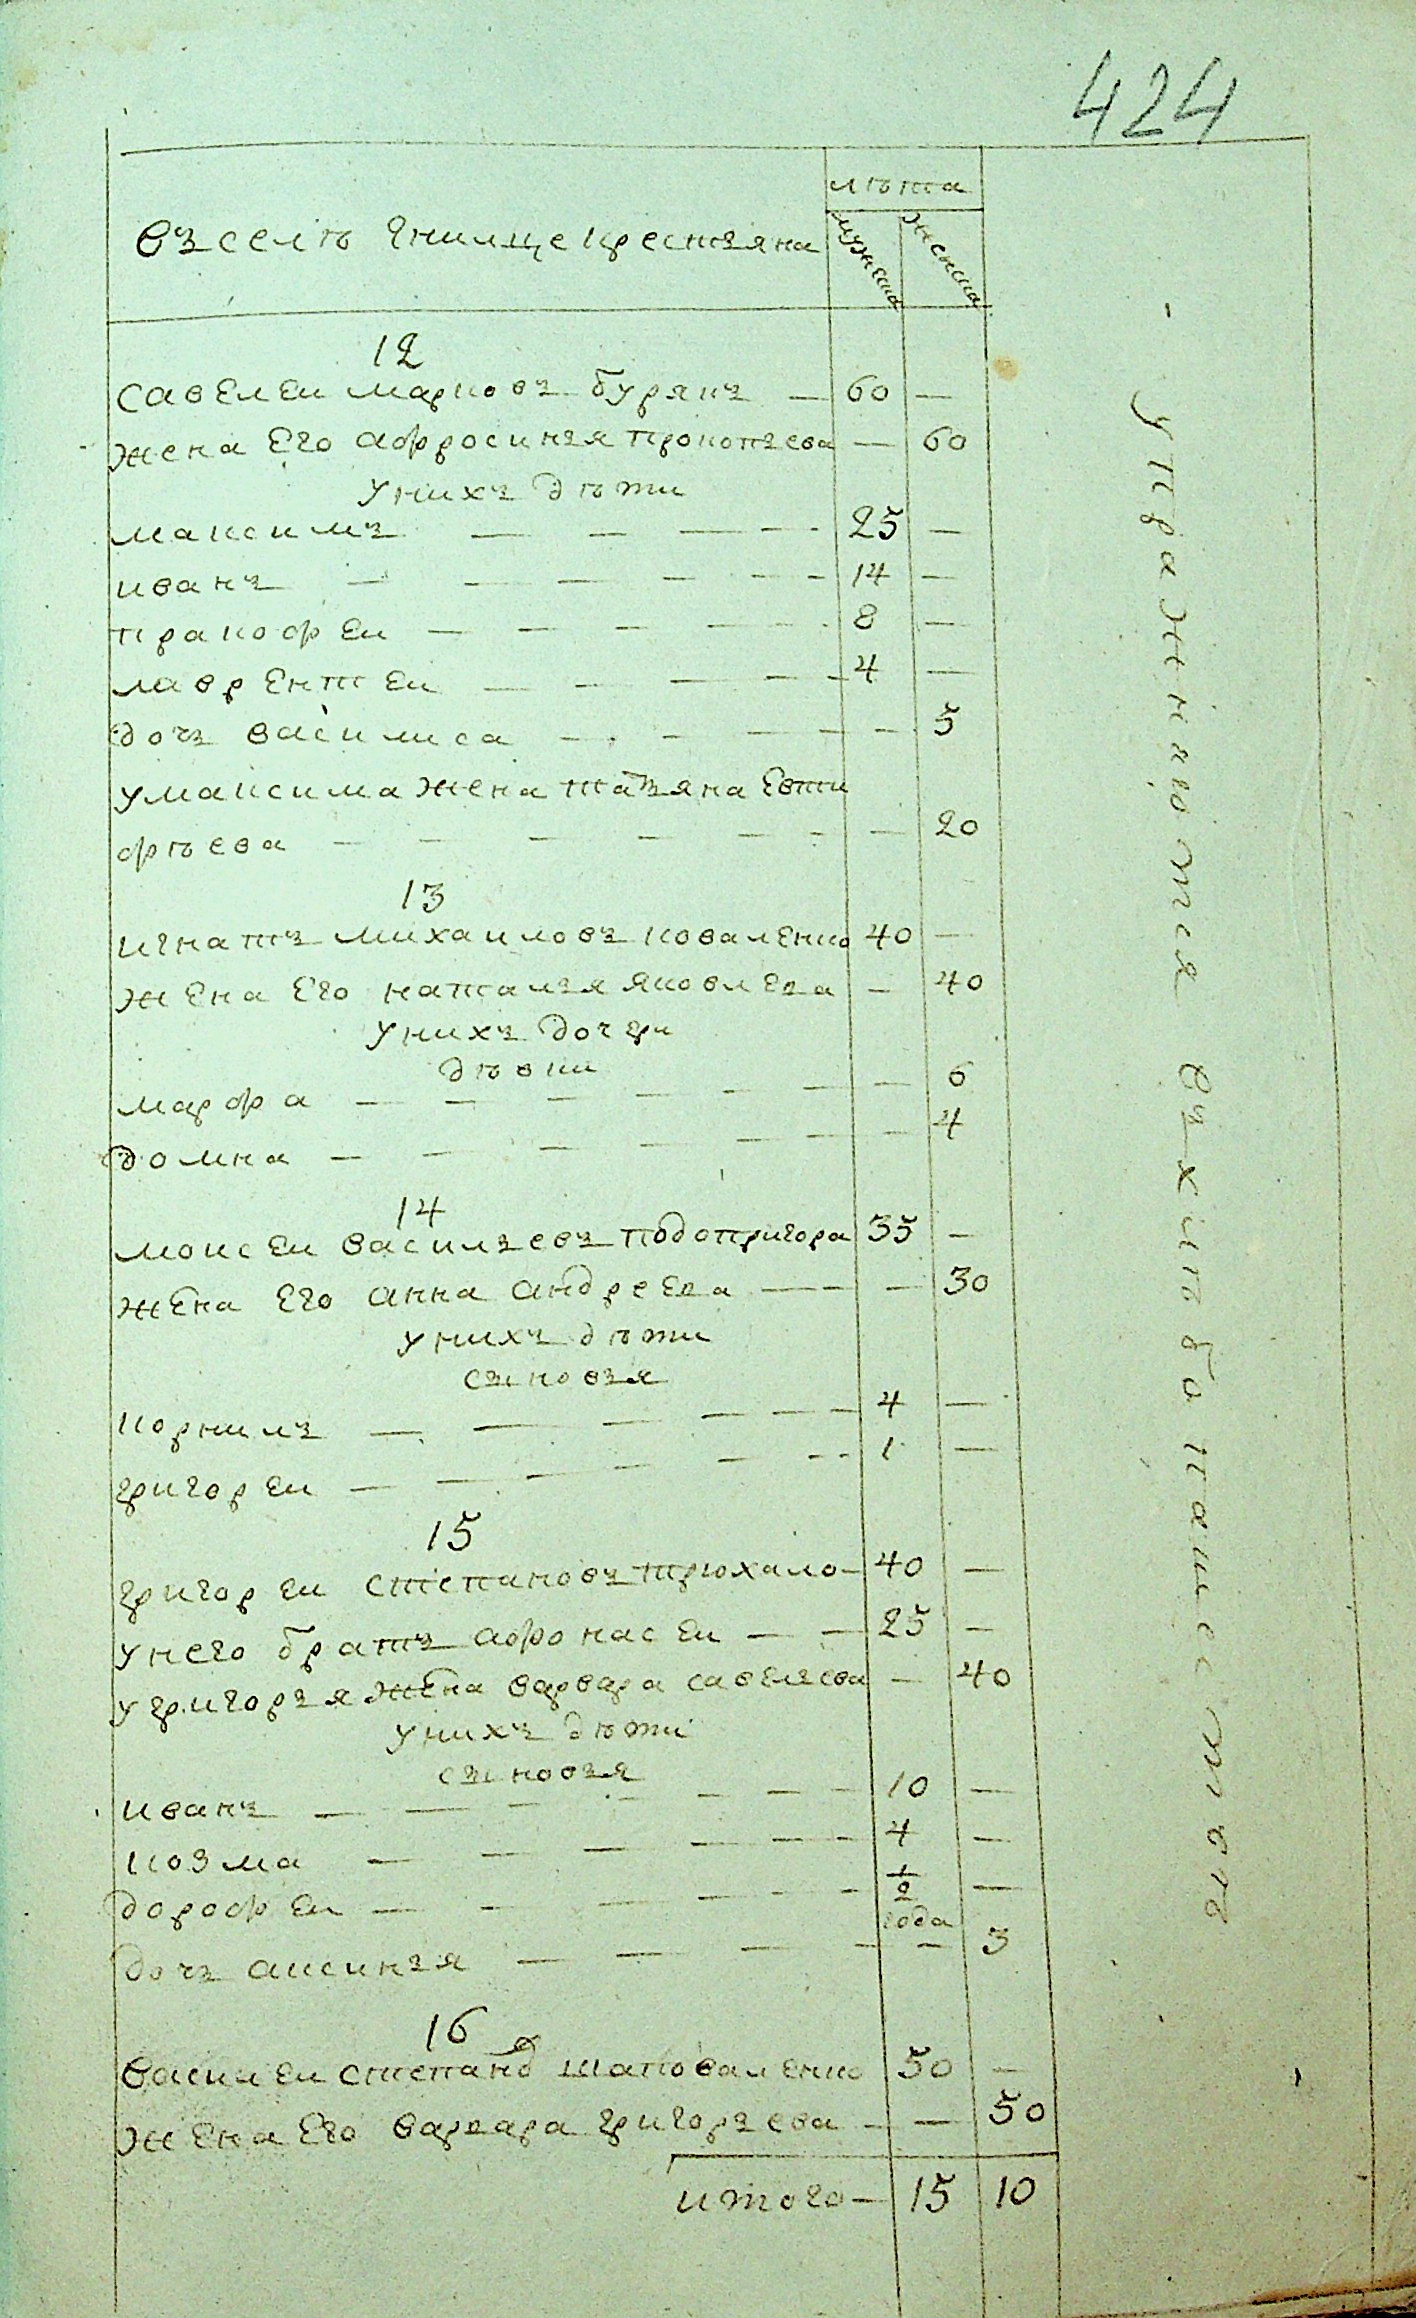 424
лѣта
въ селѣ Гнилище крестьяна
мужеска
женска
12
савелеи марковъ бурякъ — 60 —
жена Его афросинья прокопьева — 60
у нихъ дѣти
максимъ — — — — 25 —
иванъ — — — — — — 14 —
пракофеи — — — — — 8 —
лаврентеи — — — — — 4 —
дочь василиса — — — — — 5
у максима жена татьяна Евти
фѣева — — — — — — — 20
13
игнатъ михаиловъ коваленко 40 —
жена Его наталья яковлева — 40
у нихъ дочери
дѣвки
марфа — — — — — — — 6
домна — — — — — — — 4
14
моисеи васильевъ подопригора 35 —
жена Его анна андреева — — — 30
у нихъ дѣти
сыновья
корнилъ — — — — — — 4 —
григореи — — — — — — 1 —
15
григореи степановъ трюхало — 40 —
у него братъ афонасеи — — 25 —
у григорья жена варвара савельева — 40
у нихъ дѣти
сыновья
иванъ — — — — — — 10 —
козма — — — — — — 4 —
дорофеи — — — — — 1/2 года —
дочь аксинья — — — — — 3
16
василеи степановъ шаповаленко 50 —
жена Его варвара григорьева — — 50
итого — 15 10
упражняются въ хлѣбопашествѣ